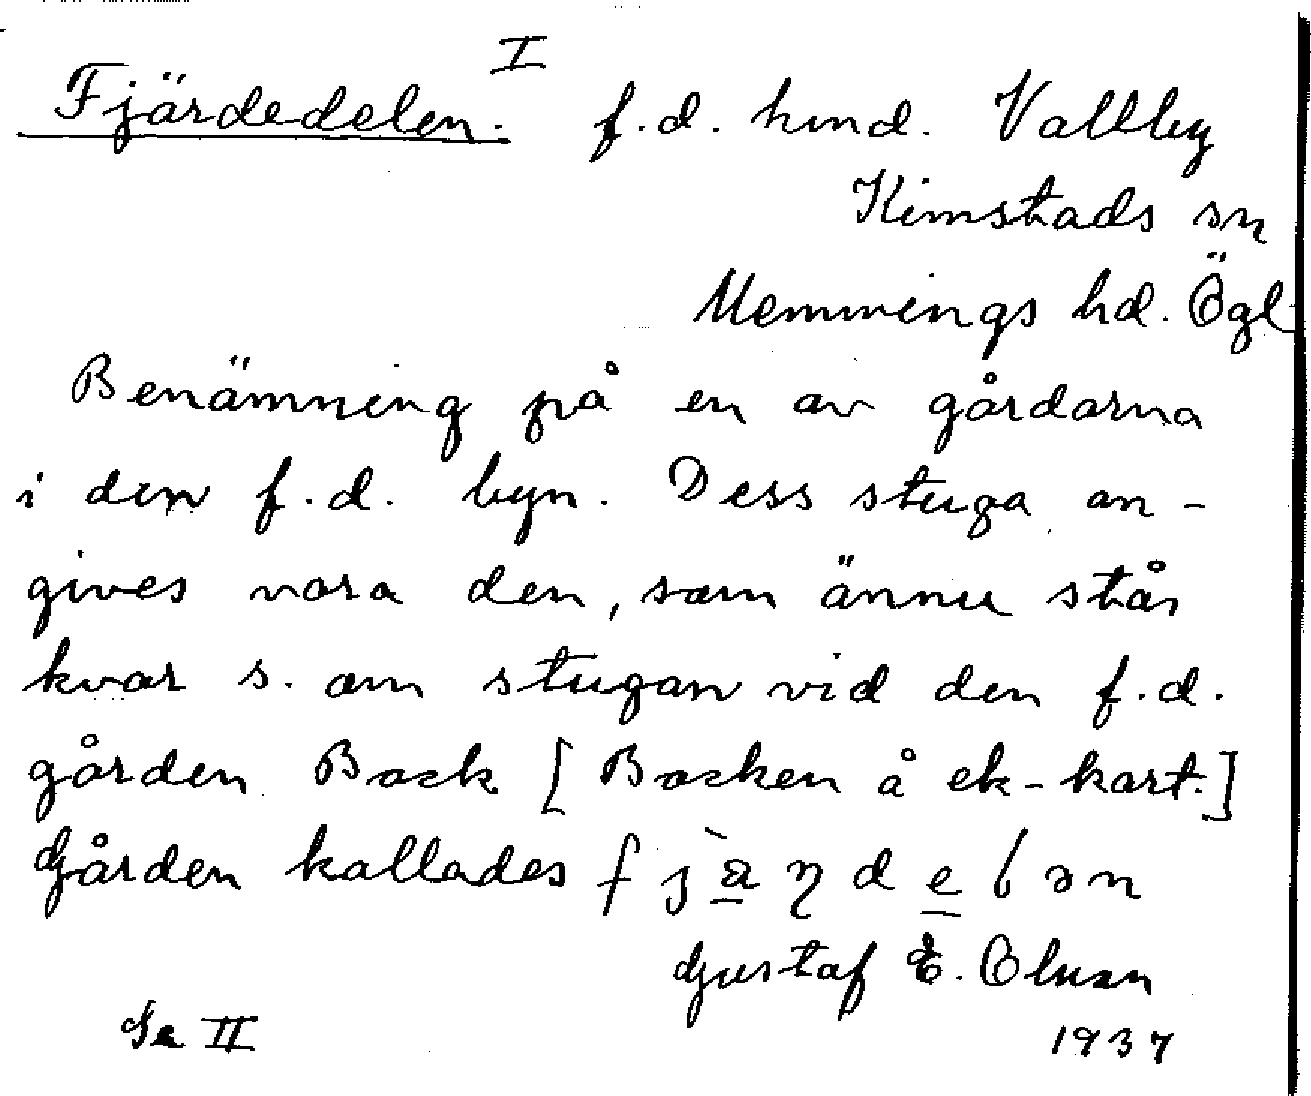 Fjärdedelen. I f.d. hmd. Vallby
Kimstads sn
Memmings hd. Ögl
Benämning på en av gårdarna
i den f.d. byn. Dess stuga an-
gives vara den, som ännu står
kvar s. om stugan vid den f.d.
gården Back [Backen å ek-kart.]
Gården kallades
Gustaf E. Olsson
Se II 1937